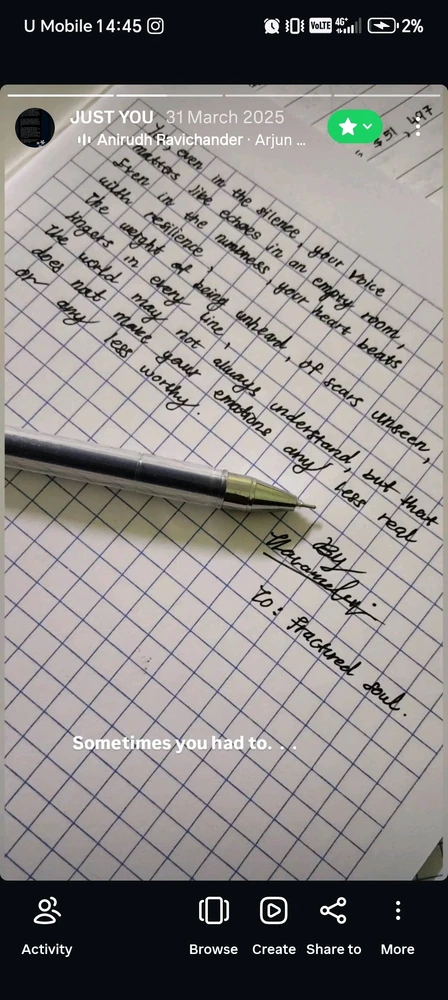 U Mobile 14:45
VoLTE 4G+ 2%
JUST YOU 31 March 2025
Anirudh Ravichander · Arjun ...
$51, 497
Yes, even in the silence, your voice
matters like echoes in an empty room,
Even in the numbness, your heart beats
with resilience,
The weight of being unheard, of scars unseen,
lingers in every line,
The world may not always understand, but that
does not make your emotions any less real
or any less worthy.
By
To: fractured soul.
Sometimes you had to. . .
Activity
Browse
Create
Share to
More